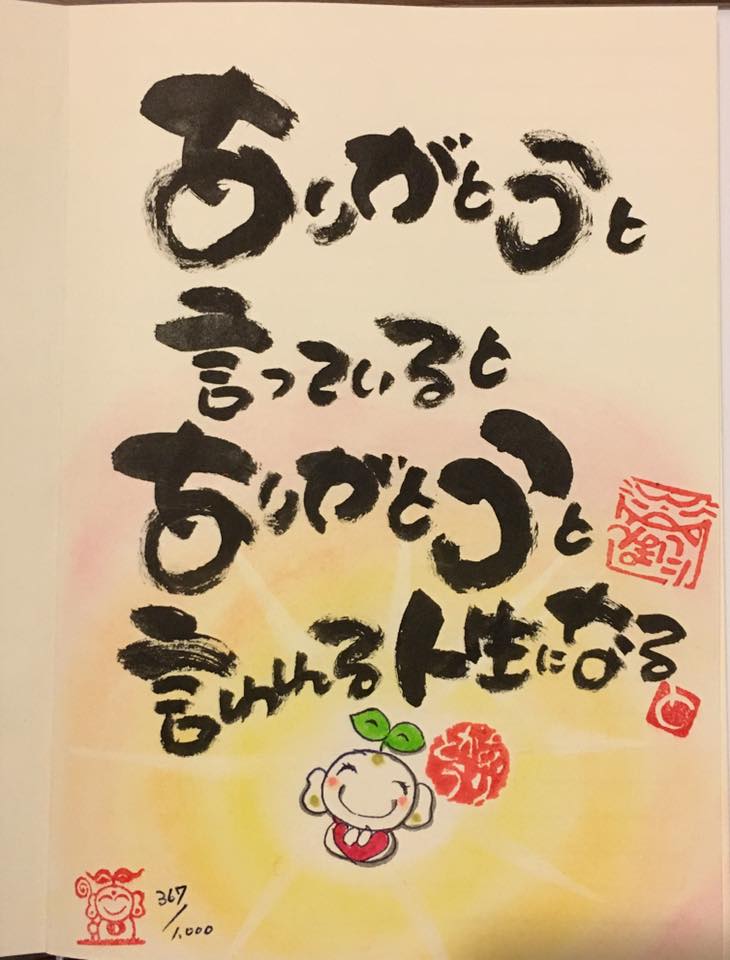 ありがとうと
言っていると
ありがとうと
言われる人生になる
ありがとう
367/1,000